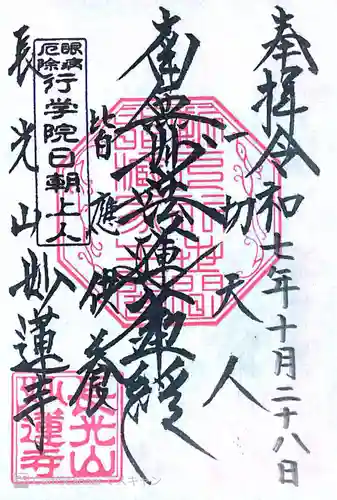 奉拝 令和七年十月二十八日
一切天人
南無妙法蓮華経
皆應供養
眼病
厄除
行学院日朝上人
長光山 妙蓮寺
長光山
妙蓮寺
CamScanner でスキャン